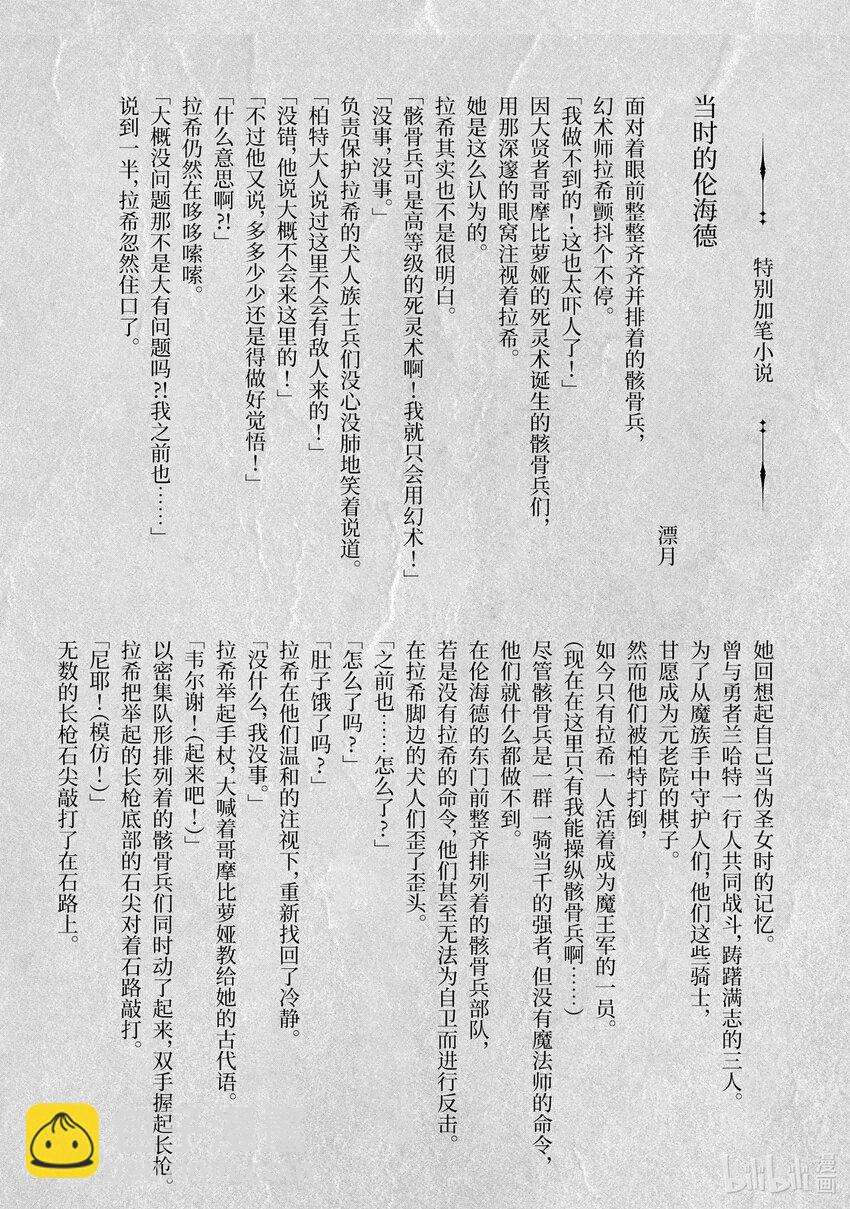 特别加笔小说
当时的伦海德
漂月
面对着眼前整整齐齐并排着的骸骨兵，
幻术师拉希颤抖个不停。
「我做不到的！这也太吓人了！」
因大贤者哥摩比萝娅的死灵术诞生的骸骨兵们，
用那深邃的眼窝注视着拉希。
她是这么认为的。
拉希其实也不是很明白。
「骸骨兵可是高等级的死灵术啊！我就只会用幻术！」
「没事，没事。」
负责保护拉希的犬人族士兵们没心没肺地笑着说道。
「柏特大人说过这里不会有敌人来的！」
「没错，他说大概不会来这里的！」
「不过他又说，多多少少还是得做好觉悟！」
「什么意思啊?!」
拉希仍然在哆哆嗦嗦。
「大概没问题那不是大有问题吗?!我之前也……」
说到一半，拉希忽然住口了。
她回想起自己当伪圣女时的记忆。
曾与勇者兰哈特一行人共同战斗，踌躇满志的三人。
为了从魔族手中守护人们，他们这些骑士，
甘愿成为元老院的棋子。
然而他们被柏特打倒，
如今只有拉希一人活着成为魔王军的一员。
(现在在这里只有我能操纵骸骨兵啊……)
尽管骸骨兵是一群一骑当千的强者，但没有魔法师的命令，
他们就什么都做不到。
在伦海德的东门前整齐排列着的骸骨兵部队，
若是没有拉希的命令，他们甚至无法为自卫而进行反击。
在拉希脚边的犬人们歪了歪头。
「之前也……怎么了?」
「怎么了吗?」
「肚子饿了吗?」
拉希在他们温和的注视下，重新找回了冷静。
「没什么，我没事。」
拉希举起手杖，大喊着哥摩比萝娅教给她的古代语。
「韦尔谢！(起来吧！)」
以密集队形排列着的骸骨兵们同时动了起来，双手握起长枪。
拉希把举起的长枪底部的石尖对着石路敲打。
「尼耶！(模仿！)」
无数的长枪石尖敲打了在石路上。
bilibili漫画